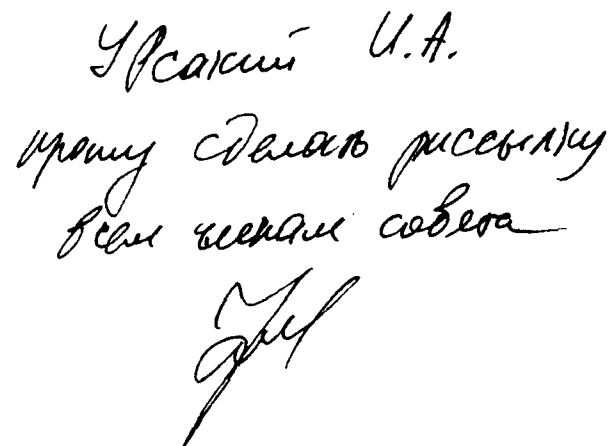 Урсакий И.А.
прошу сделать рассылку
всем членам совета